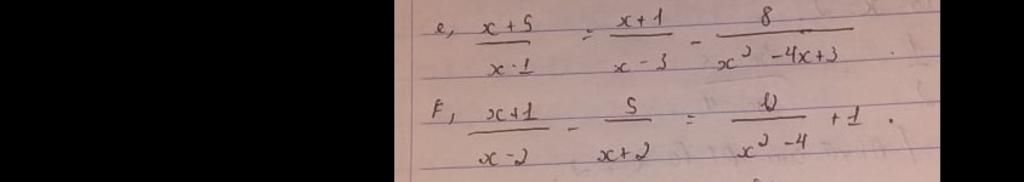 e, (x + 5)/(x - 1) = (x + 1)/(x - 3) - 8/(x² - 4x + 3)
F, (x + 1)/(x - 2) - 5/(x + 2) = 12/(x² - 4) + 1 .